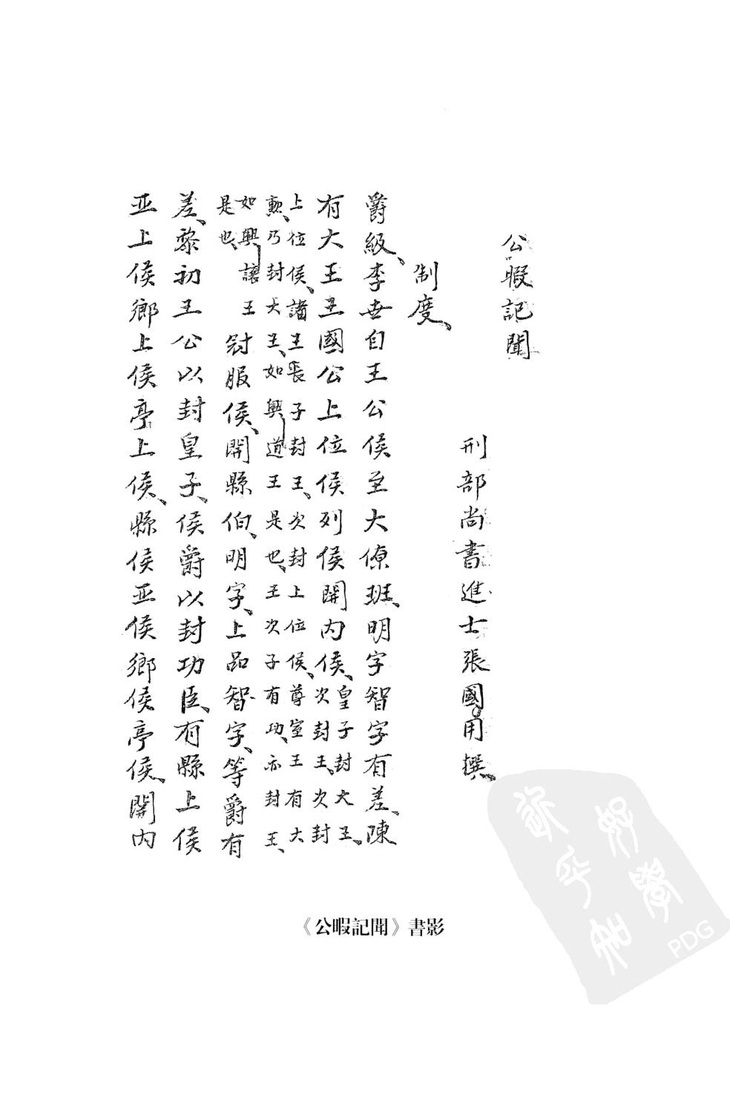 公暇記聞
刑部尚書進士張國用撰、
制度、
爵級、李世自王公侯至大僚班、明字智字有差、陳
有大王王國公上位侯列侯關內侯、皇子封大王、
次封王、次封
上位侯、諸王長子封王、次封上位侯、尊室王有大
勲、乃封大王、如興道王是也、王次子有功、亦封王、
如興讓王
是也、
冠服侯、關縣伯、明字、上品智字、等爵有
差、黎初王公以封皇子、侯爵以封功臣、有縣上侯
亞上侯鄉上侯亭上侯、縣侯亞侯鄉侯亭侯、關內
《公暇記聞》書影
PDG